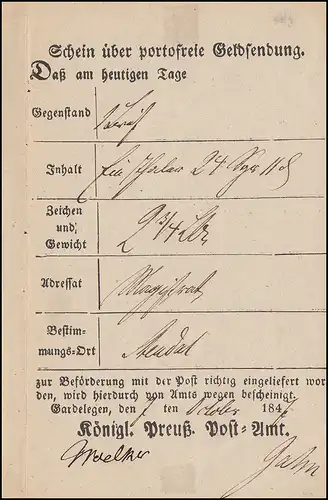 Schein über portofreie Geldsendung.
Daß am heutigen Tage
Gegenstand
Brief
Inhalt
Ein Thaler 24 Sgr 11 d
Zeichen
und
Gewicht
2 3/4 Lth
Adressat
Magistrat
Bestim-
mungs-Ort
Stendal
zur Beförderung mit der Post richtig eingeliefert wor
den, wird hierdurch von Amts wegen bescheinigt.
Gardelegen, den 7 ten October 184
Königl. Preuß. Post-Amt.